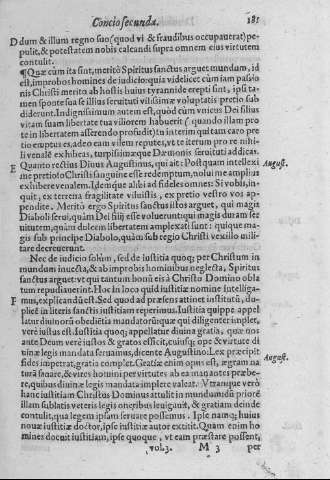 Concio secunda. 181
D dum & illum regno suo (quod vi & fraudibus occupauerat) pe-
pulit, & potestatem nobis calcandi supra omnem eius virtutem
contulit.
¶ Quæ cùm ita sint, meritò Spiritus sanctus arguet mundum, id
est, improbos homines de iudicio: quia videlicet cùm iam passio
nis Christi merito ab hostis huius tyrannide erepti sint, ipsi ta-
men sponte sua se illius seruituti vilissimæ voluptatis pretio sub
diderunt. Indignissimum autem est, quòd cùm vnicus Dei filius
vitam suam libertate tua viliorem habuerit (quando illam pro
te in libertatem asserendo profudit) tu interim quitam caro pre
tio emptus es, adeo eam vilem reputes, vt te iterum pro re nihi-
li venalē exhibeas, turpissimæque Dæmonis seruituti addicas.
E Quanto rectius Diuus Augustinus, qui ait: Postquam intellexi
me pretio Christi sanguine esse redemptum, nolui me amplius
exhibere venalem. Idemque alibi ad fideles omnes: Si vobis, in-
quit, ex terrena fragilitate viluistis, ex pretio vestro vos ap-
pendite. Meritò ergo Spiritus sanctus istos arguet, qui magis
Diaboli serui, quàm Dei filij esse voluerunt: qui magis duram ser
uitutem, quàm dulcem libertatem amplexati sunt: quique ma-
gis sub principe Diabolo, quàm sub regio Christi vexillo mili-
tare decreuerunt.
August.
Nec de iudicio solùm, sed de iustitia quoque per Christum in
mundum inuecta, & ab improbis hominibus neglecta, Spiritus
sanctus arguet: vt qui tantum bonū eis à Christo Domino obla
tum repudiauerint. Hoc in loco quid iustitiæ nomine intelliga-
F mus, explicandū est. Sed quod ad præsens attinet institutū, du-
plicē in literis sanctis iustitiam reperimus. Iustitia quippe appel
latur diuinorū obedientia mandatorū: quæ qui diligenter implet,
verè iustus est. Iustitia quoque appellatur diuina gratia, quæ nos
ante Deum verè iustos & gratos efficit, cuiusque ope & virtute di
uinæ legis mandata seruamus, dicente Augustino: Lex præcipit
fides impetrat, gratia complet. Gratiæ enim opus est, ægram na
turā sanare, & vires homini per virtutes ab ea manantes præbe-
re, quibus diuinæ legis mandata implere valeat. Vtranque verò
hanc iustitiam Christus Dominus attulit in mundum: dū priorē
illam sublatis veteris legis oneribus leuigauit, & gratiam deinde
contulit, qua legem ipsam seruare possemus. Ipse namque huius
nouæ iustitiæ doctor, ipse iustitiæ autor extitit. Quam enim ho
mines docuit iustitiam, ipse quoque, vt eam præstare possent,
August.
vol. 3. M 3 per